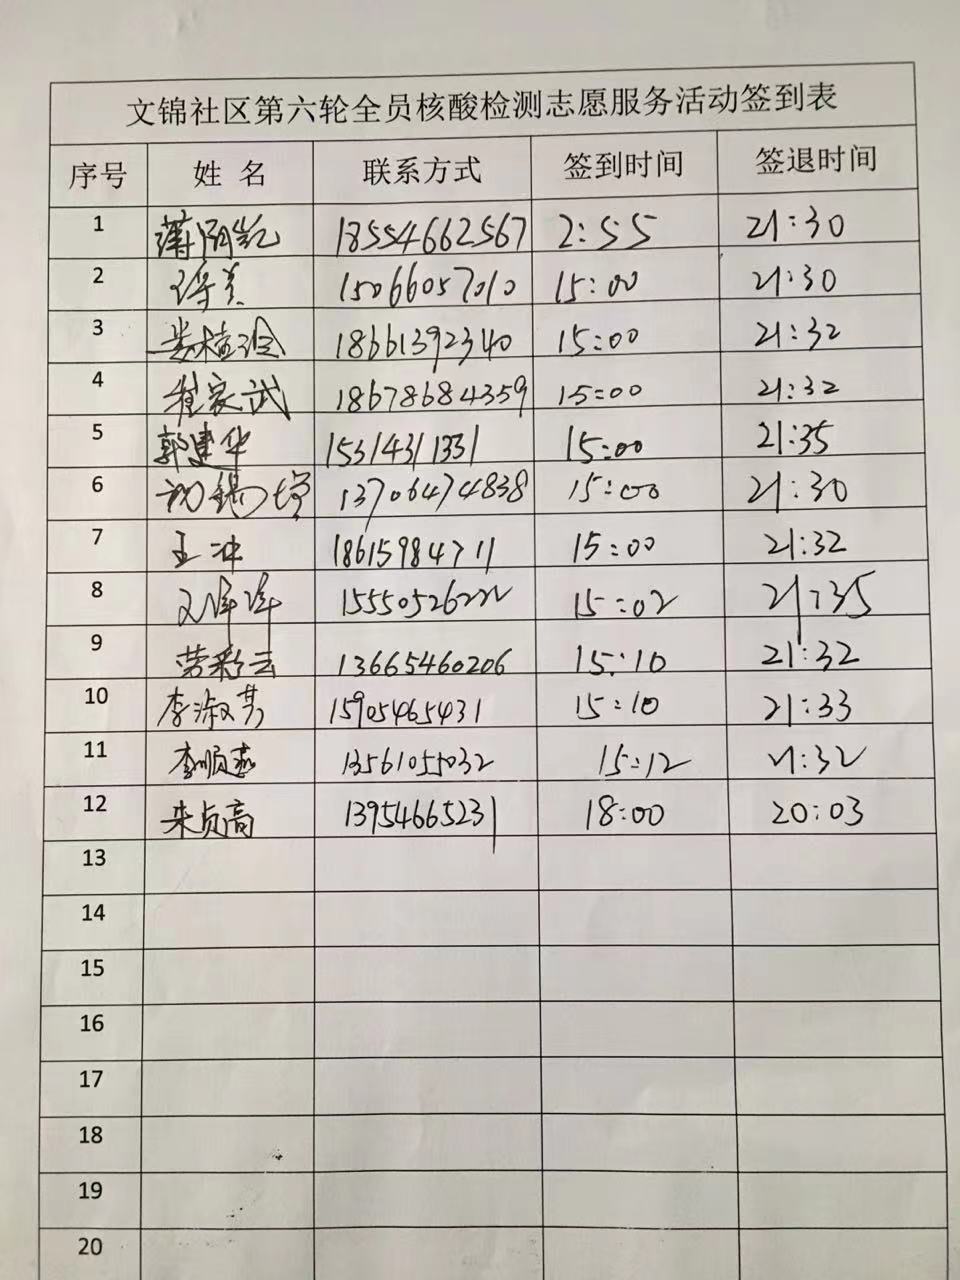 文锦社区第六轮全员核酸检测志愿服务活动签到表
序号 姓 名 联系方式 签到时间 签退时间
1 薄 凯 18554662567 2:55 21:30
2 15066057010 15:00 21:30
3 娄桂 18661392340 15:00 21:32
4 崔家武 18678684359 15:00 21:32
5 郭建华 15314311331 15:00 21:35
6 锡 13706474838 15:00 21:30
7 王冲 18615984711 15:00 21:32
8 15550526222 15:02 21:35
9 劳彩云 13665460206 15:10 21:32
10 李淑芳 15905465431 15:10 21:33
11 李顺燕 13561055032 15:12 21:32
12 朱贞高 13954665231 18:00 20:03
13
14
15
16
17
18
19
20